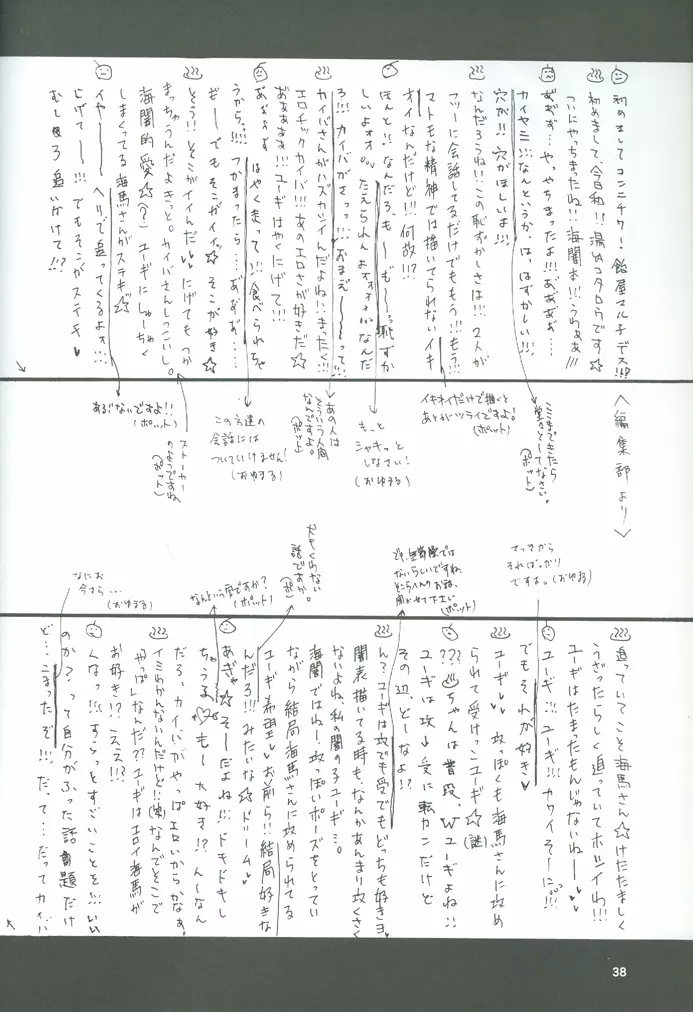 初めましてコンニチワ!飴屋マルチデス!!?
初めまして、今日和!!湯のコタロウです☆
ついにやっちまったね!!海闇本!!うわぁぁ!!!
あぁぁ…やっちまったよ!!!あぁぁぁ…
カイヤミ!!!なんというか、はっはずかしい!!!
穴が!!!穴がほしいよ!!!
なんだろうね!!この恥ずかしさは!!!2人が
フツーに会話してるだけでもう!!!もう!!!
マトモな精神では描いてられないイキ
オイなんだけど!!!何故!!?
ほんと!!!なんだろ、もー、もー〜っ恥ずか
しいよォォ。たえられんよォォ
ろ!!!カイバがさっっ!!!おまえ〜〜って!!!
カイバさんがハズカシイんだよね!!まったく!!!
エロチックカイバ!!!あのエロさが好きだ☆
あぁぁぁぁ!!!ユーギはやくにげて!!!
あぁぁぁはやく走って!!!食べられちゃ
うから…!!!つかまったら…あぁぁぁ……
ぎーでもそこがイイッ☆そこが好き☆
そう!!!そこがイイんだ♥にげてもつか
まっちゃうんだよきっと。カイバさんしつこいし。
海闇的愛☆(?)ユーギにしゅーちゃく
しまくってる海馬さんがステキ☆
イヤー〜ヘリで追ってくるよォ!!!
にげてー〜!!!でもそこがステキ♥
むしろ追いかけて!!?
〈編集部より〉
ここまできたら
堂々としてなさい。
(ポット)
イキオイだけで描くと
あとがツライですよ!
(ポット)
もっと
シャキっと
しなさい!
(おゆまる)
あの人は
そういう人間
なんですよ。
(ポット)
この方達の
会話には
ついていけません!
(おゆまる)
ストーカーの
ようですね。
(ポット)
あぶないですよ!!
(ポット)
さっきから
そればっかり
ですよ。(おゆまる)
(ポット)
話ですか。
なんという字ですか?
(ポット)
なにお
今さら…
(おゆまる)
追っていてこそ海馬さん☆けたたましく
うざったらしく追っていてホシイわ!!!
ユーギはたまったもんじゃないねー〜♥
ユーギ!!!ユーギ!!!カワイそーに…!!!
でもそれが好き♥
ユーギ♥攻っぽくも海馬さんに攻め
られて受けっこユーギ☆(謎)
???ちゃんは普段、Wユーギよね!!
ユーギは攻→受に転カンだけど
その辺、どーなよ!?
ん?ユーギは攻でも受でもどっちも好きヨ。
闇表描いてる時も、なんかあんまり攻くさく
ないよね、私の闇の子ユーギ…。
海闇ではねー、攻っぽいポーズをとってい
ながら結局海馬さんに攻められてる
ユーギ希望♥お前ら!!結局好きな
んだろ!!!みたいな☆ドリーム♥
あぎゃ☆そーだよね!!!ドキドキし
ちゃうも〜もー大好き!?んーなん
だろ、カイバがやっぱエロいからかなぁ。
イミわかんないんだけど!!(笑)なんでそこで
"やっぱ"なんだ??ユーギはエロイ海馬が
お好き!?ええ!!?
くなっ!!!すらっとすごいことを!!!いい
のか?って自分がふった話題だけ
ど…こまったぞ!!!だって…だってカイバ
38